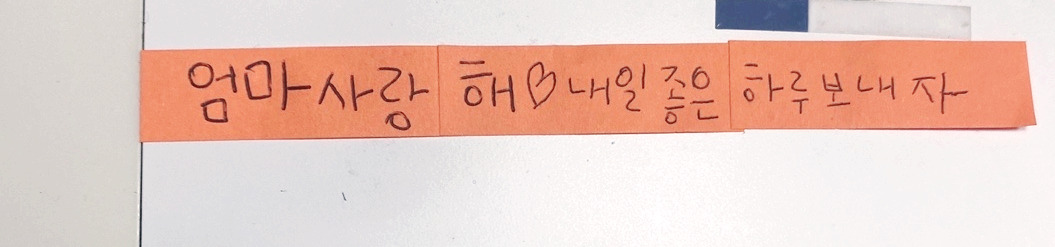 엄마사랑해♡내일 좋은 하루보내자